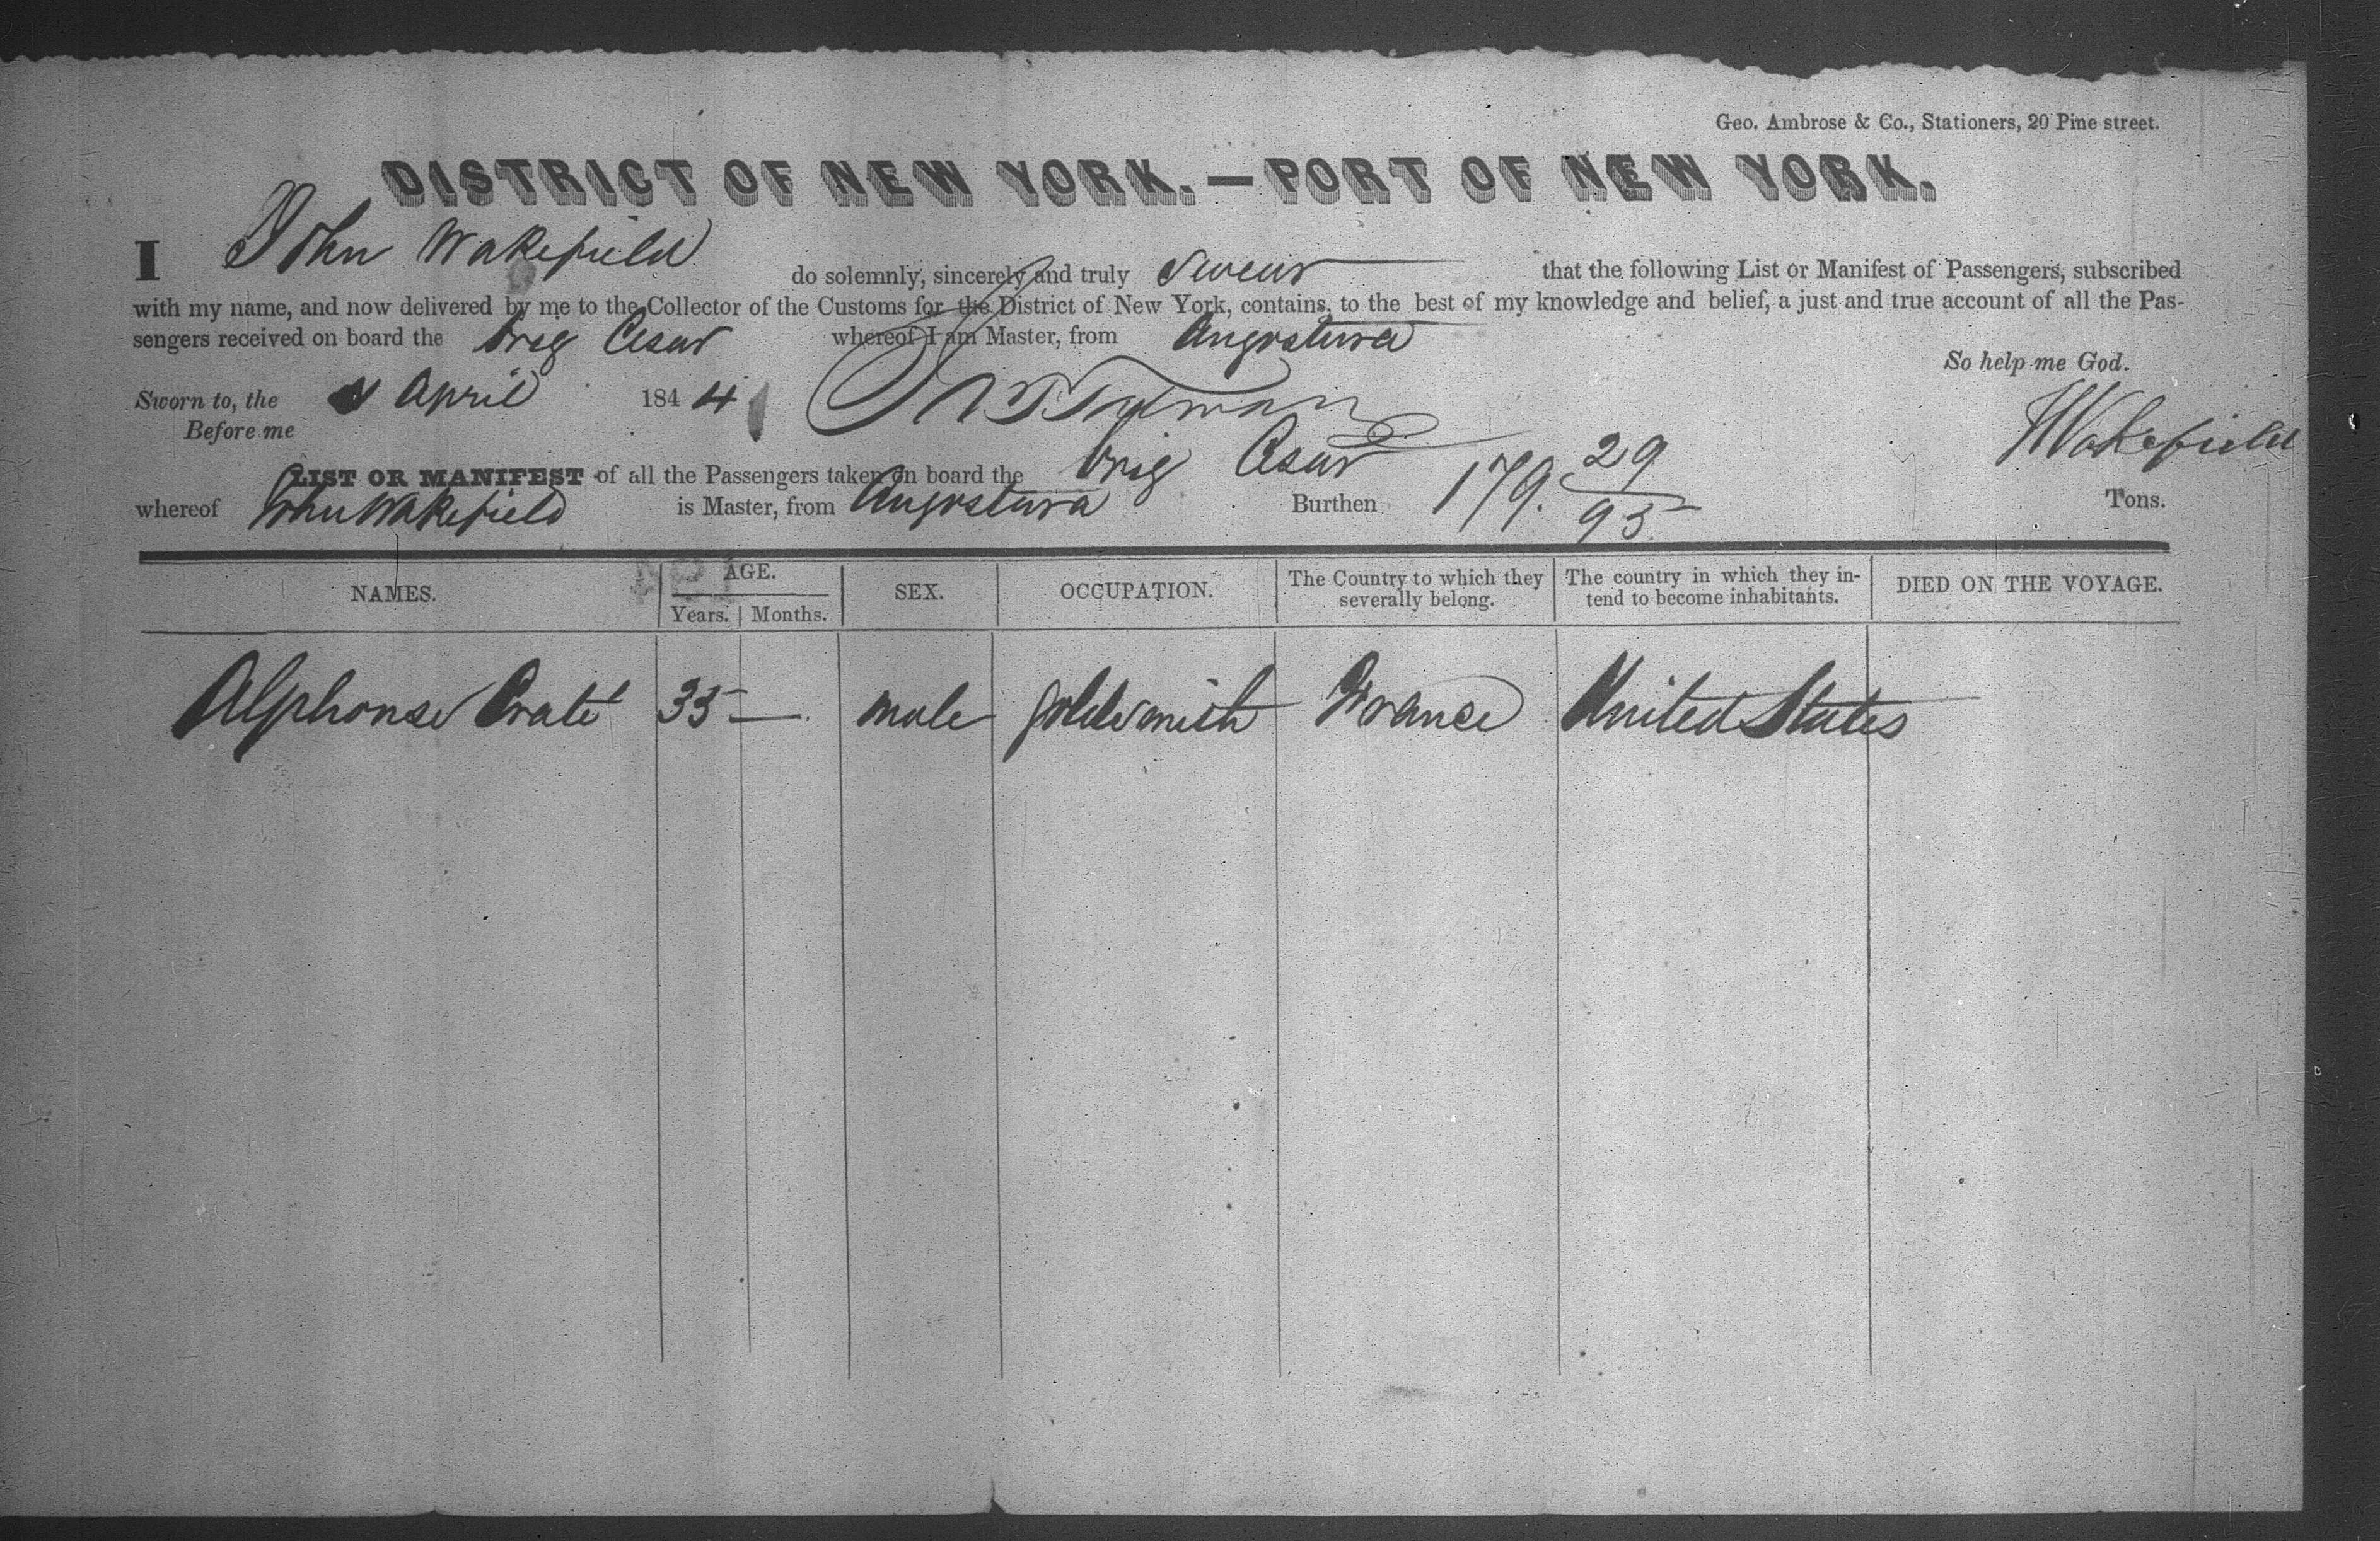 Geo. Ambrose & Co., Stationers, 20 Pine street.
DISTRICT OF NEW YORK.—PORT OF NEW YORK.
I John Wakefield do solemnly, sincerely and truly swear that the following List or Manifest of Passengers, subscribed
with my name, and now delivered by me to the Collector of the Customs for the District of New York, contains, to the best of my knowledge and belief, a just and true account of all the Pas-
sengers received on board the brig Cesar whereof I am Master, from Angostura
So help me God.
Sworn to, the April 1844
Before me
Wakefield
LIST OR MANIFEST of all the Passengers taken on board the brig Cesar
whereof John Wakefield is Master, from Angostura Burthen 179. 29/95 Tons.
NAMES. AGE. SEX. OCCUPATION. The Country to which they severally belong. The country in which they in-tend to become inhabitants. DIED ON THE VOYAGE.
Years. Months.
Alphonse 33 — male goldsmith France United States